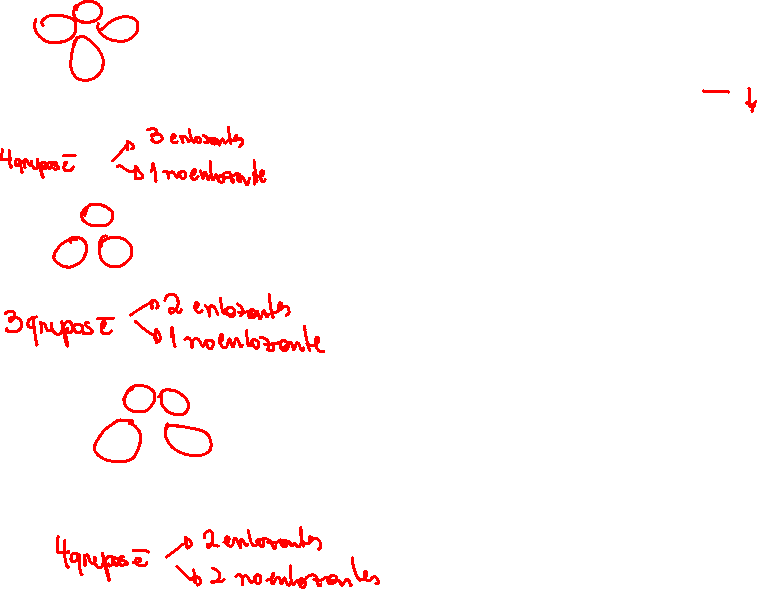 3 enlazantes
4 grupos ē
1 no enlazante
3 grupos ē
2 enlazantes
1 no enlazante
4 grupos ē
2 enlazantes
2 no enlazantes